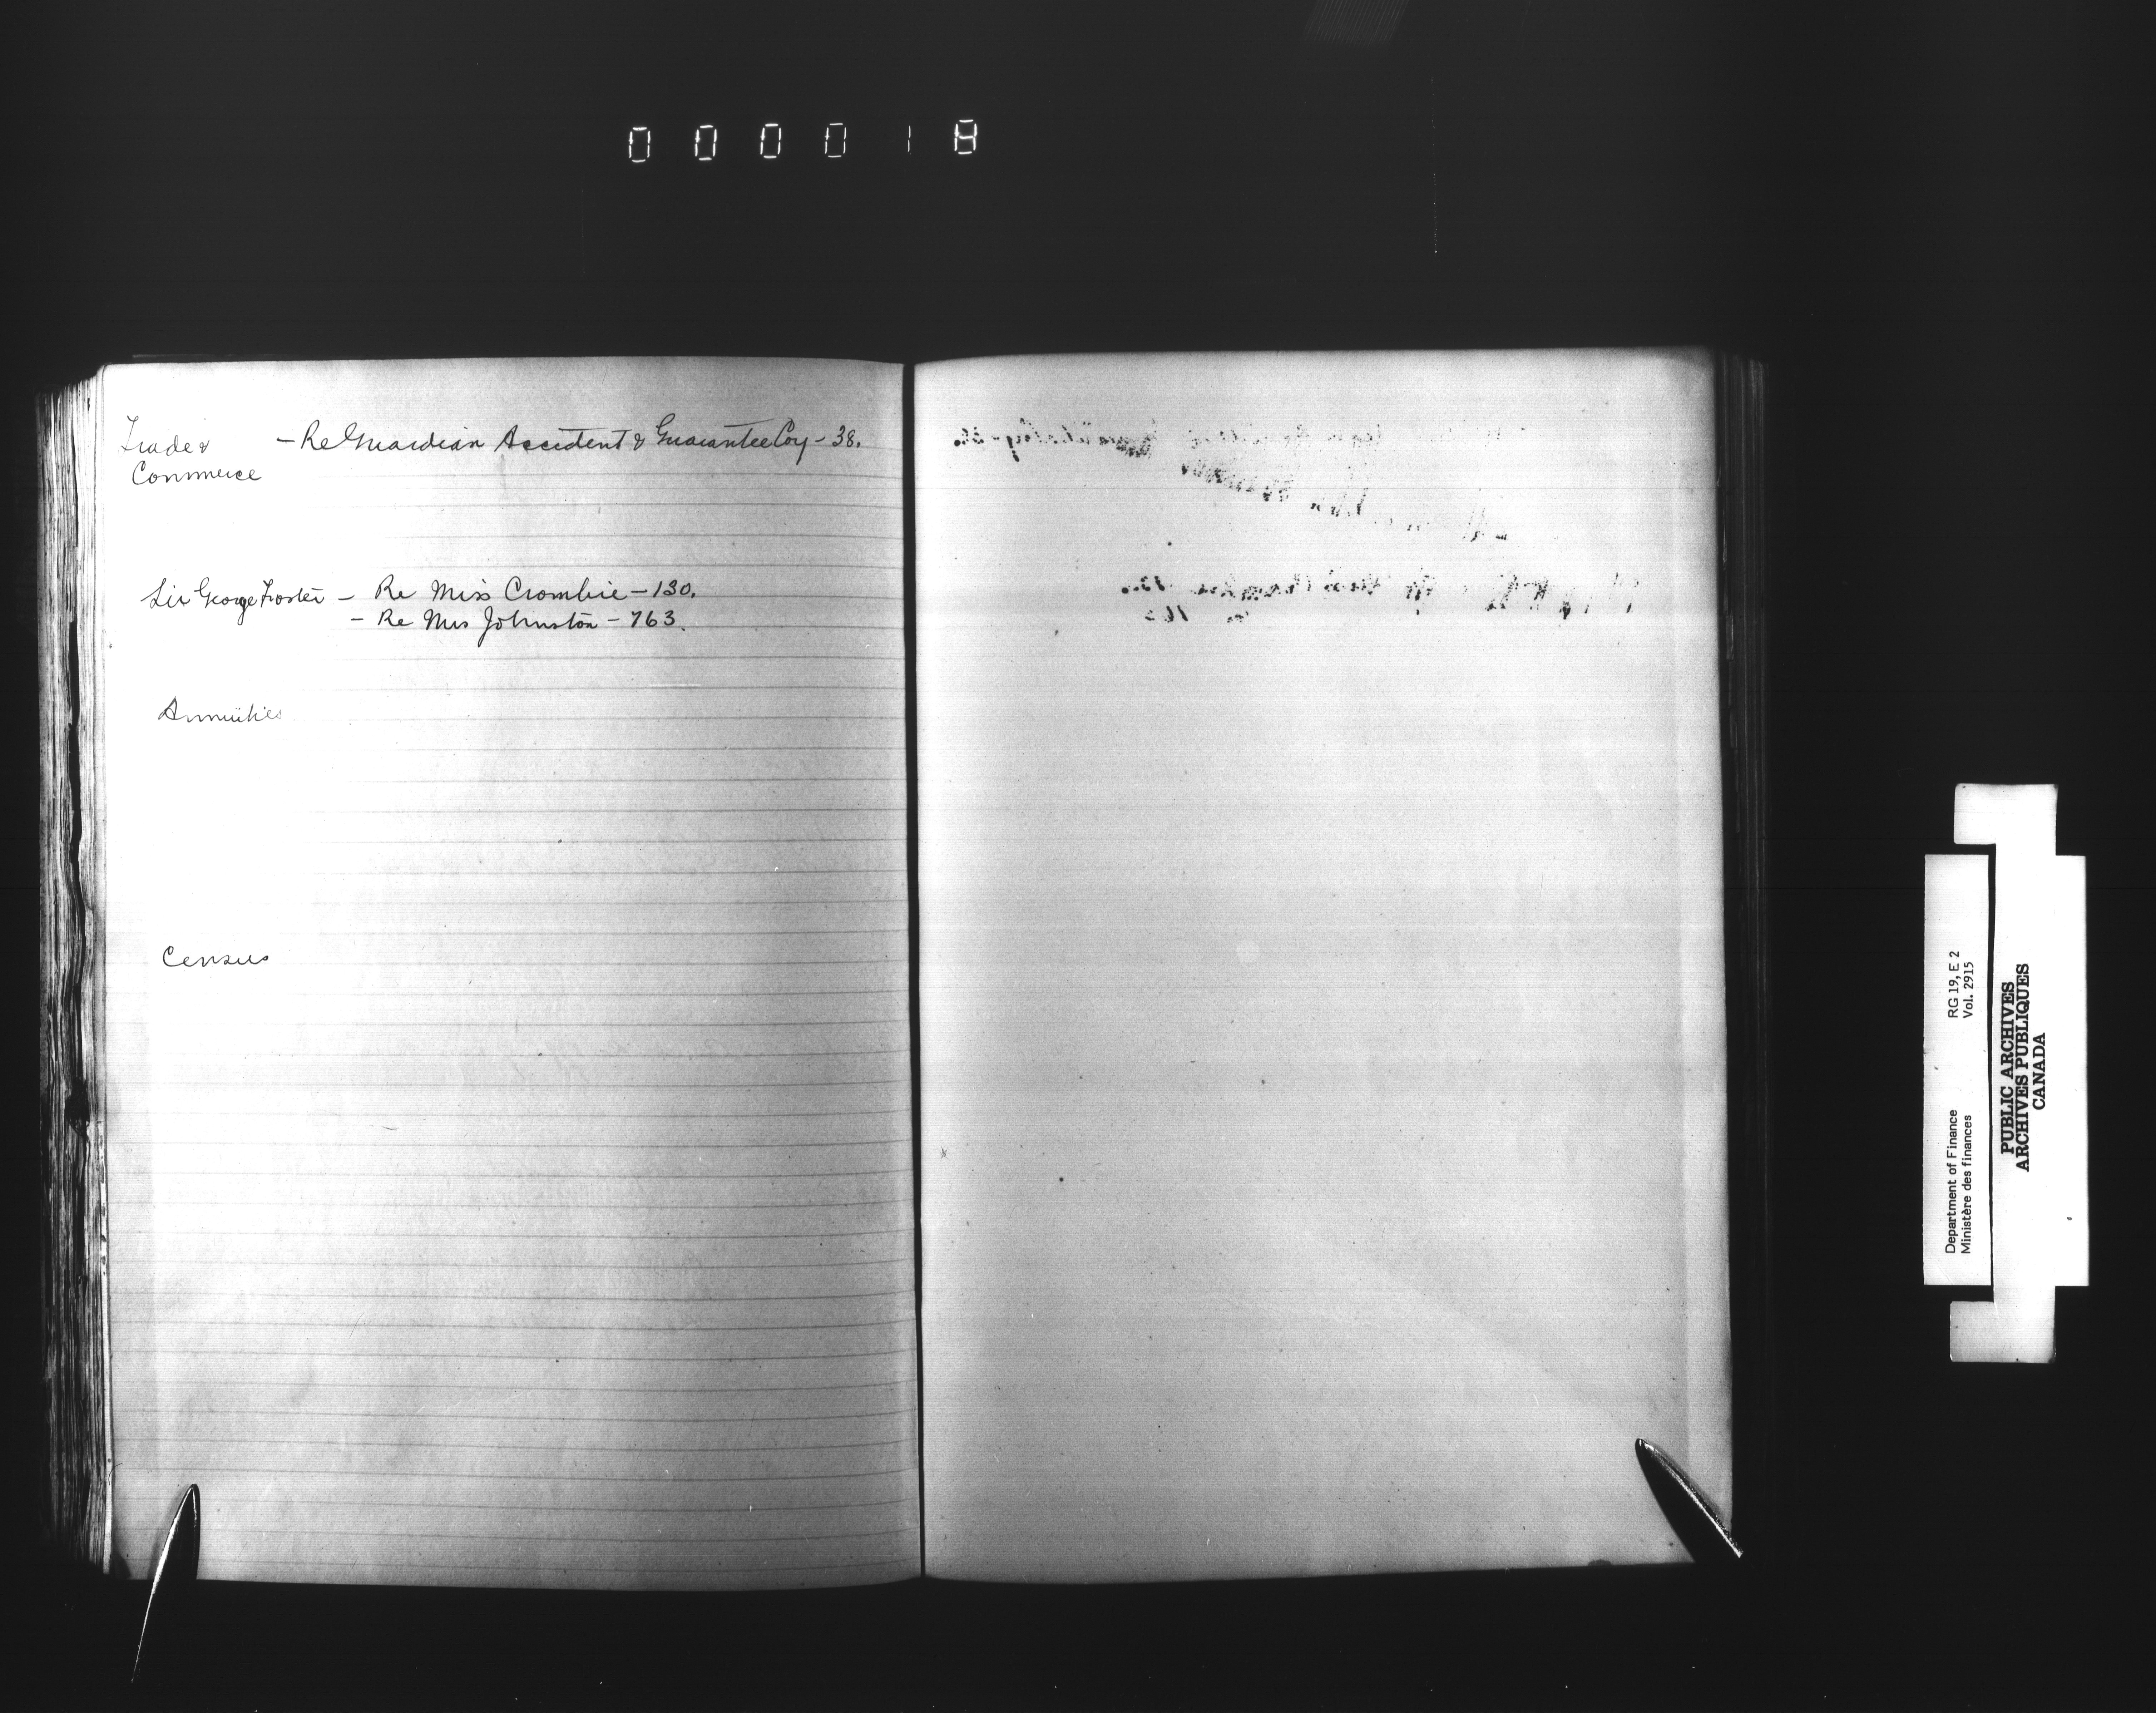 000018
Trade & — Re Guardian Accident & Guarantee Coy – 38.
Commerce
Sir George Foster — Re Miss Crombie – 130.
— Re Mrs Johnston – 763.
Annuities
Census
Department of Finance RG 19, E 2
Ministère des finances Vol. 2915
PUBLIC ARCHIVES
ARCHIVES PUBLIQUES
CANADA